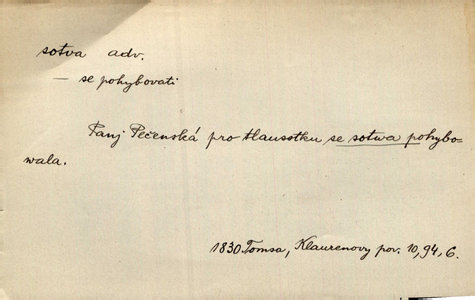 sotva adv.
— se pohybovati
Panj Pečenská pro tlaustku se sotwa pohybo-
wala.
1830 Tomsa, Klaurenovy pov. 10, 94, 6.